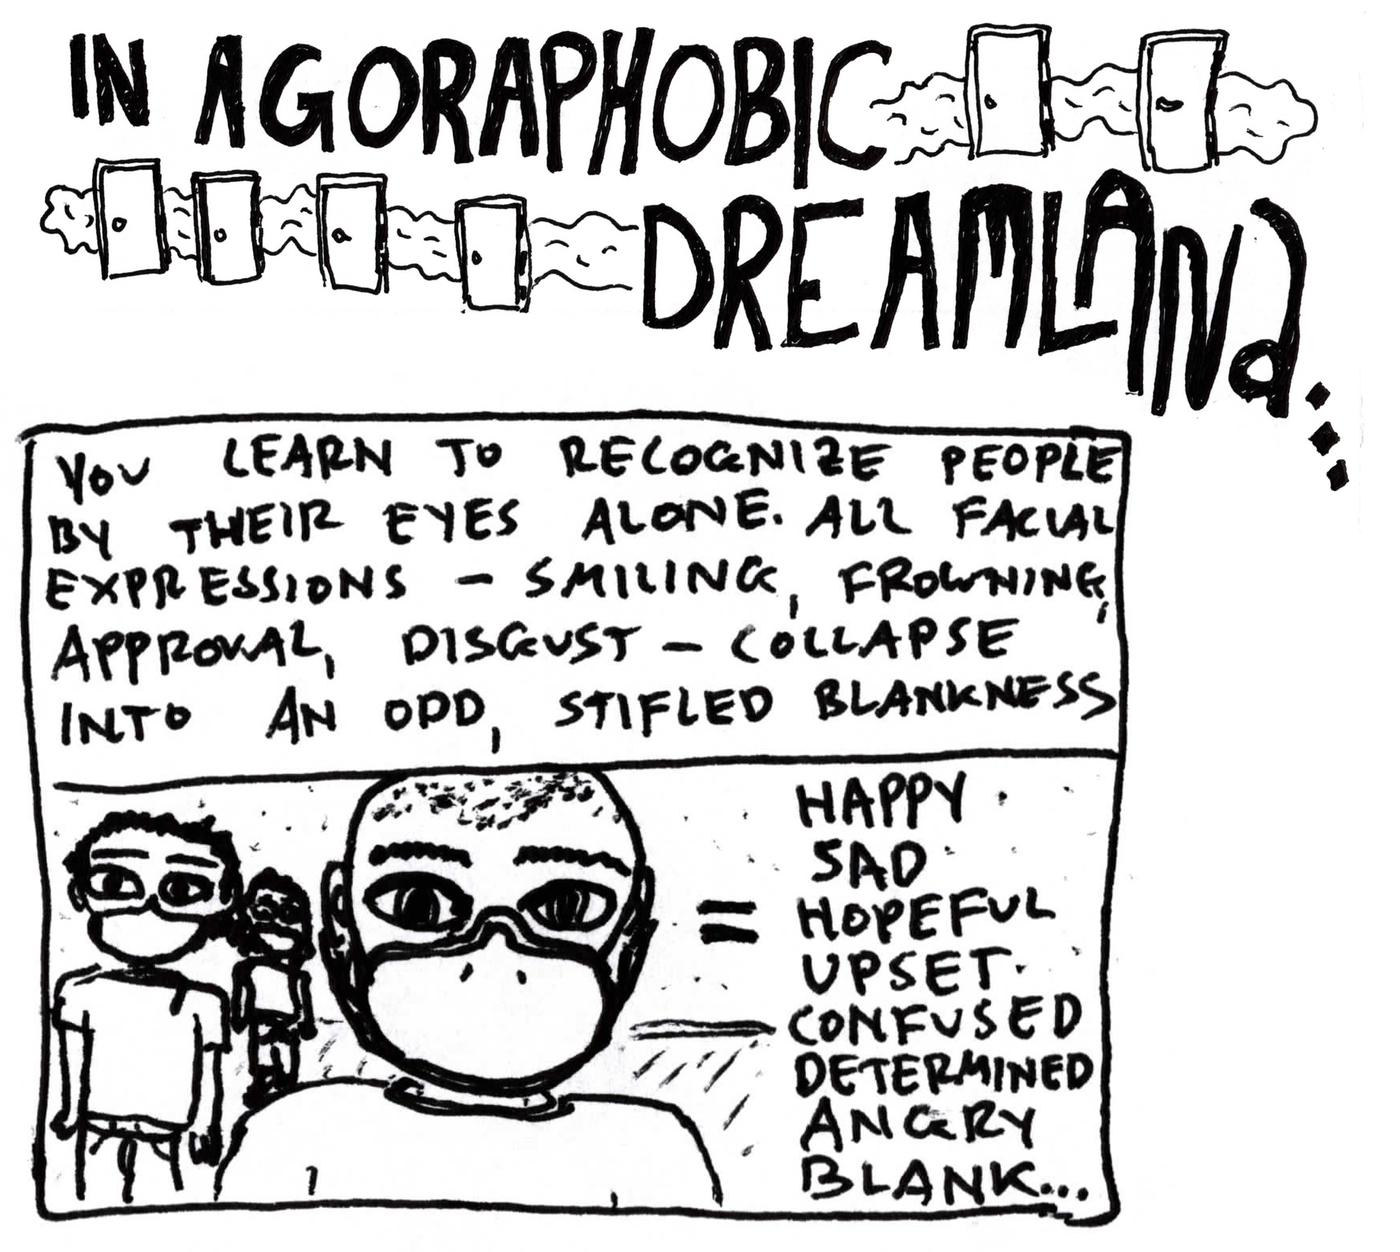 IN AGORAPHOBIC
DREAMLANd...
YOU LEARN TO RECOGNIZE PEOPLE
BY THEIR EYES ALONE. ALL FACIAL
EXPRESSIONS – SMILING, FROWNING,
APPROVAL, DISGUST – COLLAPSE
INTO AN ODD, STIFLED BLANKNESS
=
HAPPY
SAD
HOPEFUL
UPSET
CONFUSED
DETERMINED
ANGRY
BLANK...